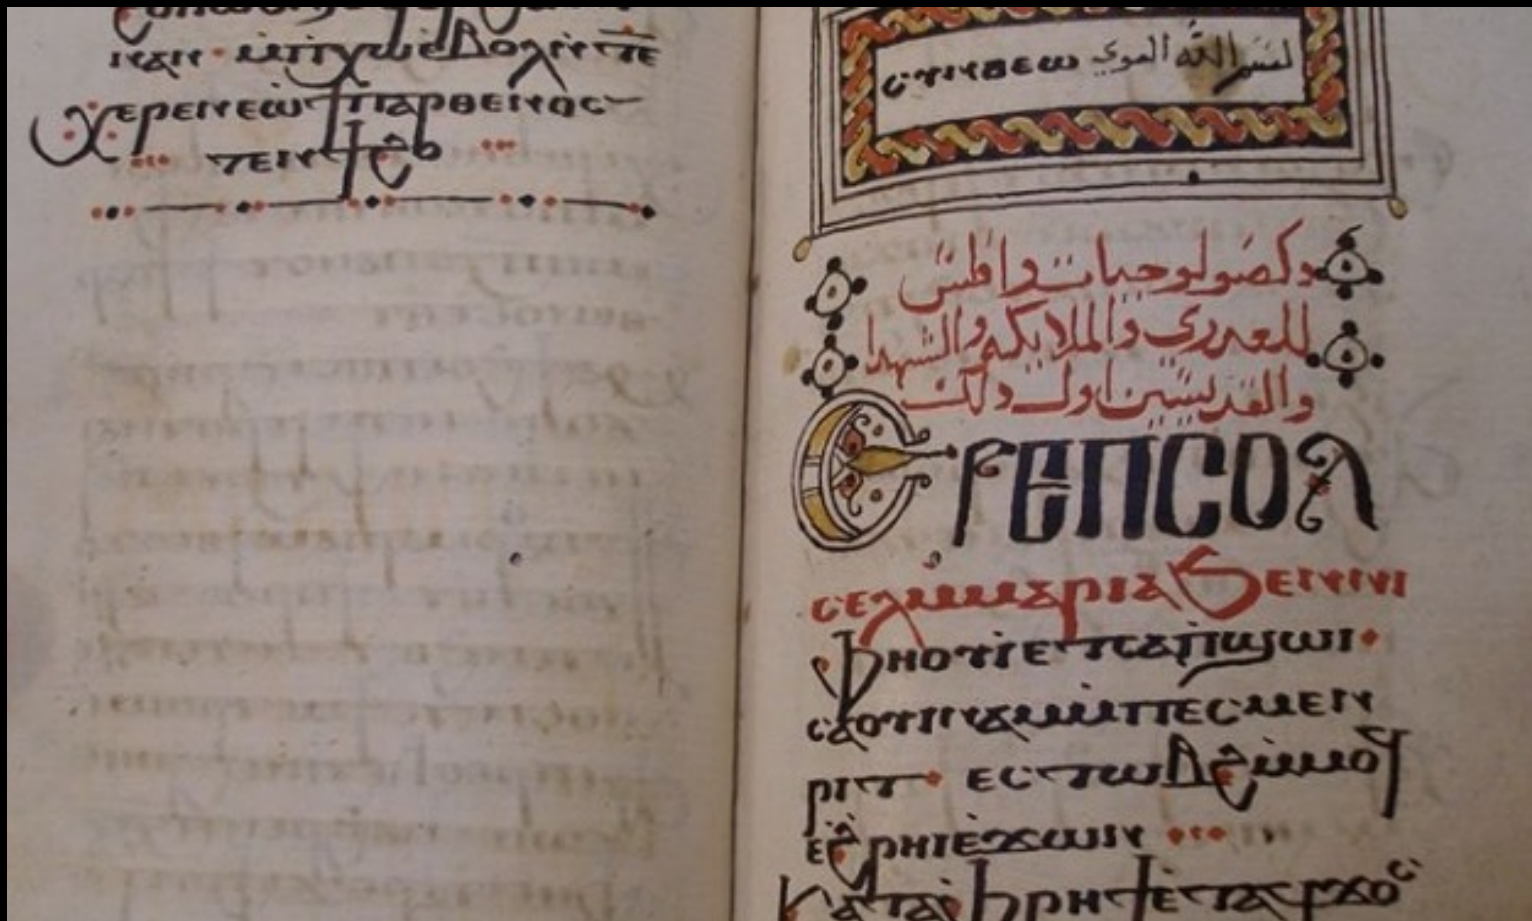 ⲛⲁⲛ · ⲙ̀ⲡⲓⲭⲱ ⲉ̀ⲃⲟⲗ ⲛ̀ⲧⲉ
Ⲭⲉⲣⲉ ⲛⲉ ⲱ̀ ϯⲡⲁⲣⲑⲉⲛⲟⲥ
ⲧⲉⲛϯϩⲟ
ⲥⲩⲛⲑⲉⲱ بسم الله القوي
دكصولوجيات واطس
للعدري والملايكه والشهدا
والقديسين اول دلك
Ⲉⲣⲉⲡⲥⲟⲗ
ⲥⲉⲗ ⲙ̀ⲙⲁⲣⲓⲁ ϧⲉⲛ ⲛⲓ
ⲫⲏⲟⲩⲓ ⲉⲧⲥⲁⲡ̀ϣⲱⲓ ·
ⲥⲁⲟⲩⲓⲛⲁⲙ ⲙ̀ⲡⲉⲥⲙⲉⲛ
ⲣⲓⲧ · ⲉⲥⲧⲱⲃϩ ⲙ̀ⲙⲟϥ
ⲉ̀ϩ̀ⲣⲏⲓ ⲉ̀ϫⲱⲛ
Ⲕⲁⲧⲁ ⲫ̀ⲣⲏϯ